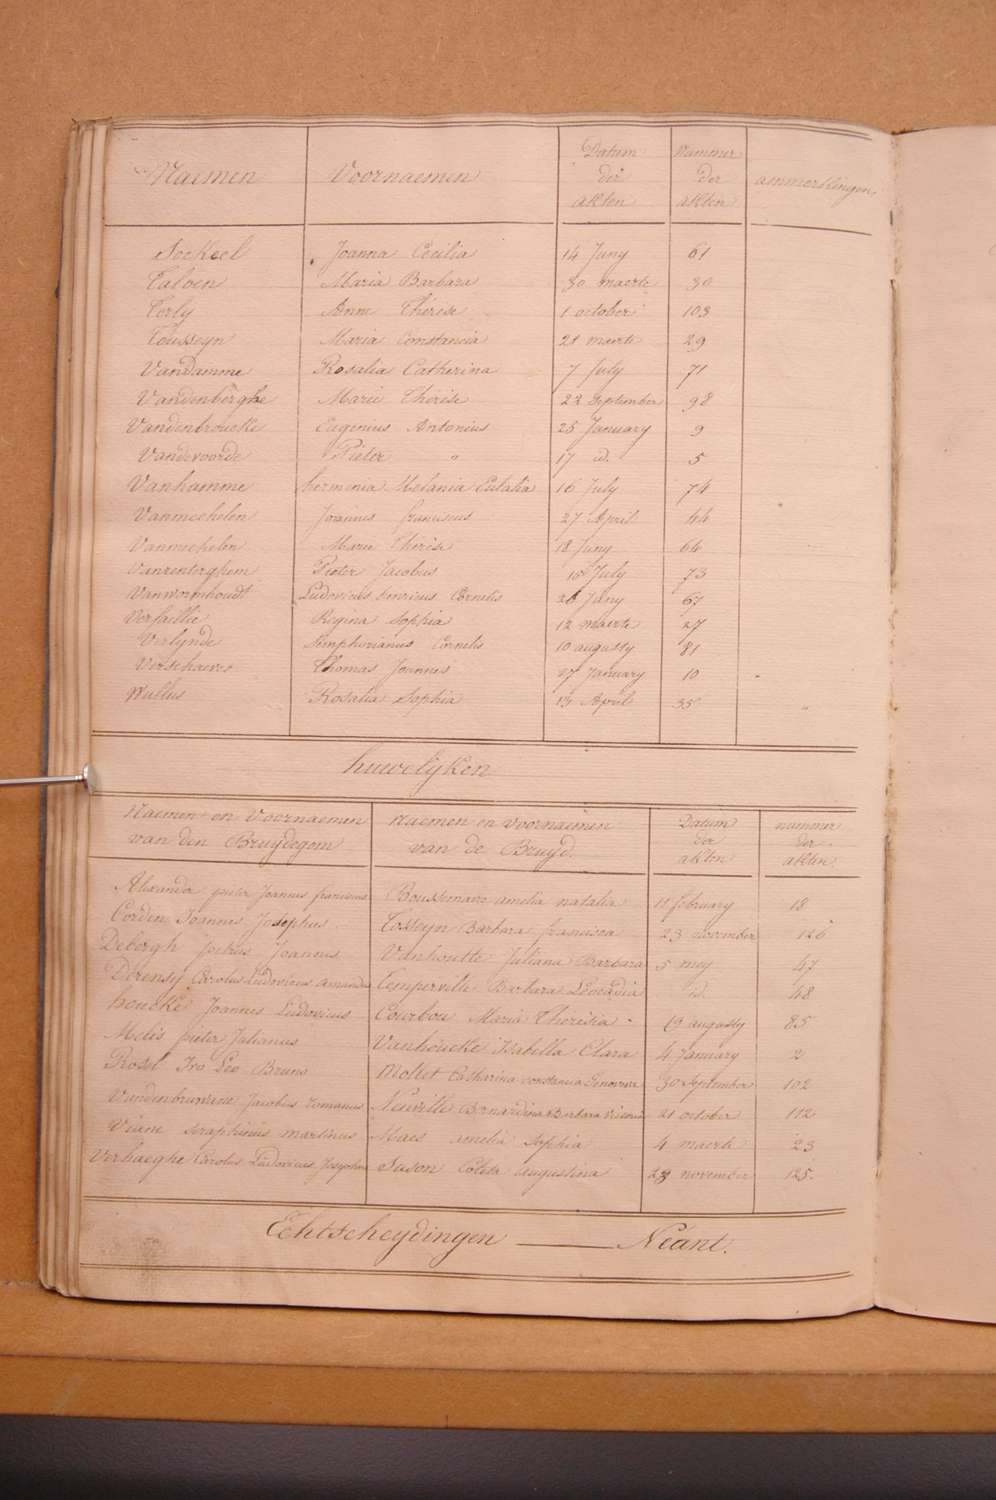 Naemen Voornaemen Datum der akten Nummer der akten aenmerklingen
Sockeel Joanna Cecilia 14 Juny 61
Taloen Maria Barbara 30 maerte 30
Terly Anne Thérèse 1 october 103
Tousseyn Maria Constancia 28 maerte 29
Vandamme Rosalia Catherina 7 July 71
Vandenberghe Marie Thérèse 22 September 98
Vandenbroucke Eugenius Antonius 25 January 9
Vandevoorde Pieter " 17 id. 5
Vanhamme hermenia Melania Eulalia 16 July 74
Vanmechelen Joannes franciscus 27 April 44
Vanmechelen Marie Thérèse 18 Juny 64
Vanrenterghem Pieter Jacobus 10 July 73
Vanwormhoudt Ludovicus henricus Cornelis 26 Juny 67
Verfaillie Regina Sophia 12 maerte 27
Verlynde Simphorianus Cornelis 10 augusty 81
Verschaeve Thomas Joannes 27 January 10
Wullus Rosalia Sophia 13 April 35
huwelijken
Naemen en Voornaemen van den Bruydegom Naemen en voornaemen van de Bruyd. Datum der akten nummer der akten.
Alexander pieter Joannes franciscus Boussemaere amelia natalia 11 february 18
Cordin Joannes Josephus Tosseyn Barbara francisca 23 november 126
Debergh Petrus Joannes Vanhoutte Juliana Barbara 5 mey 47
Derensy Carolus Ludovicus amandus Temperville Barbara Leocadia id. 48
houcke Joannes Ludovicus Courbou Maria Theresia 19 augusty 85
Melis pieter Julianus Vanhoucke Isabella Clara 4 January 2
Rosel Ivo Leo Bruno Mollet Catharina constancia Genoveva 30 September 102
Vandenbruwane Jacobus romanus Neuville Bernardina Barbara Victoria 21 october 112
Viane Seraphinus martinus Maes amelia Sophia 4 maerte 23
Verhaeghe Carolus Ludovicus Josephus Sason Coleta augustina 23 november 125.
Echtscheydingen — Néant.